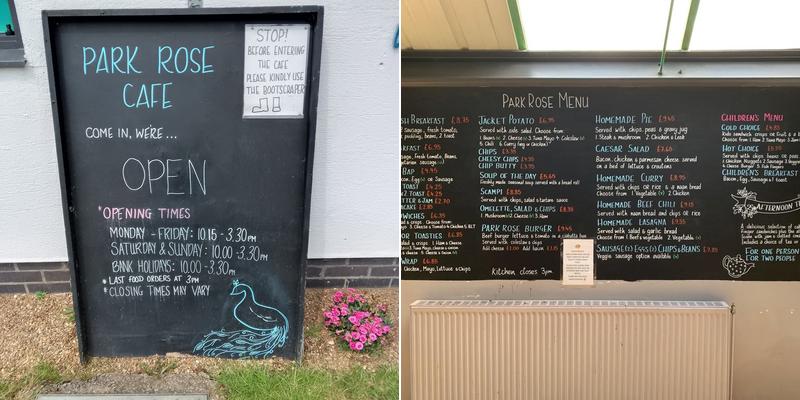 PARK ROSE
CAFE
COME IN, WE'RE...
OPEN
*OPENING TIMES
MONDAY - FRIDAY: 10.15 - 3.30PM
SATURDAY & SUNDAY: 10.00 - 3.30PM
BANK HOLIDAYS: 10.00 - 3.30PM
*LAST FOOD ORDERS AT 3PM
*CLOSING TIMES MAY VARY
STOP!
BEFORE ENTERING
THE CAFE
PLEASE KINDLY USE
THE BOOTSCRAPER
PARK ROSE MENU
SH BREAKFAST £8.75
sausage, fresh tomato,
pudding, beans, 2 toast
KFAST £6.95
Fresh Tomato, Beans,
BAP £4.95
or Sausage
TOAST £4.25
2 TOAST £4.25
£2.70
£2.85
WICHES £6.35
OR TOASTIES £6.85
WRAP £6.85
Chicken, Mayo, Lettuce & Chips
JACKET POTATO £6.95
Served with side salad. Choose from:
1 Beans (v) 2 Cheese (v) 3 Tuna Mayo 4 Coleslaw (v)
CHIPS £3.35
CHEESY CHIPS £4.35
CHIP BUTTY £3.95
SOUP OF THE DAY £5.65
Freshly made seasonal soup served with a bread roll
SCAMPI £8.85
Served with chips, salad & tartare sauce
OMELETTE, SALAD & CHIPS £8.35
1 Mushroom (v) 2 Cheese (v) 3 Ham
PARK ROSE BURGER £9.45
Beef burger, lettuce & tomato in a
Served with coleslaw & chips
Add cheese £1.00 Add bacon £1.15
Kitchen closes 3pm
HOMEMADE PIE £9.45
Served with chips, peas & gravy jug
1 Steak & mushroom 2 Chicken & Leek
CAESAR SALAD £7.65
Bacon, chicken & parmesan cheese served
on a bed of lettuce & croutons
HOMEMADE CURRY £8.95
Served with chips or rice & a naan bread
Choose from 1 Vegetable (v) 2 Chicken
HOMEMADE BEEF CHILLI £9.15
Served with naan bread and chips or rice
HOMEMADE LASAGNA £9.35
Served with salad & garlic bread
Choose from 1 Beef 2 Vegetable (v)
SAUSAGE (2) EGGS (2) CHIPS & BEANS £7.85
Veggie sausage option available (v)
CHILDREN'S MENU
COLD CHOICE £4.85
HOT CHOICE £5.50
CHILDREN'S BREAKFAST
Bacon, Egg, Sausage & 1 toast
AFTERNOON T
FOR ONE PERSON
FOR TWO PEOPLE